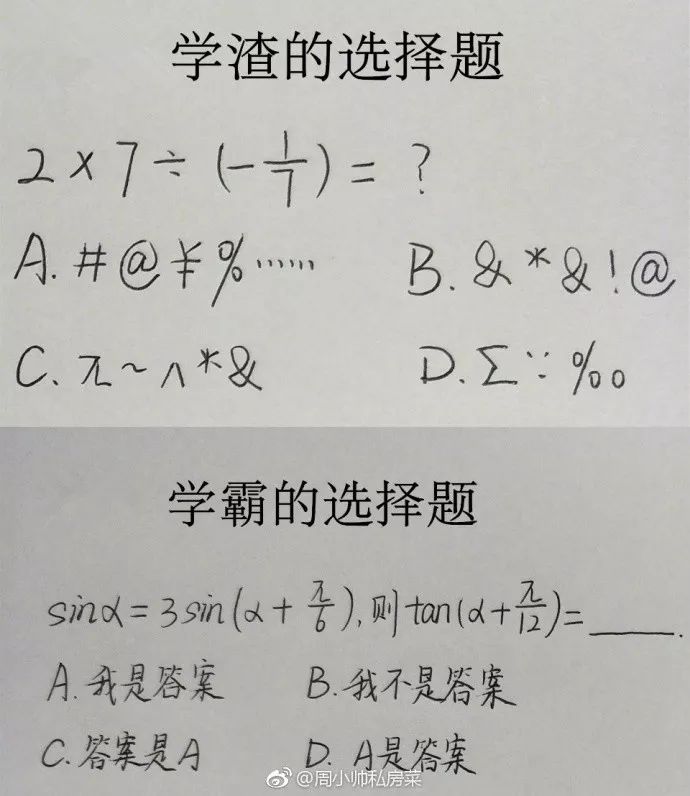 学渣的选择题
2×7÷(-1/7)=？
A.#@￥%…… B.&*&!@
C.π~∧*& D.∑∵‰
学霸的选择题
sinα=3sin(α+π/6),则tan(α+π/12)=____.
A.我是答案 B.我不是答案
C.答案是A D.A是答案
@周小帅私房菜